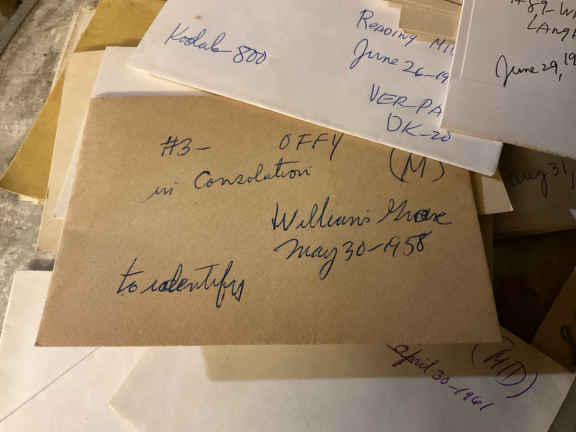 Kodak 800
Reading
June 26-19
VER-PA
DK-20
June 29, 19
#3- OFFY
(M)
in Consolation
Williams Grove
May 30-1958
to identify
31,
(MD)
April 30-1961